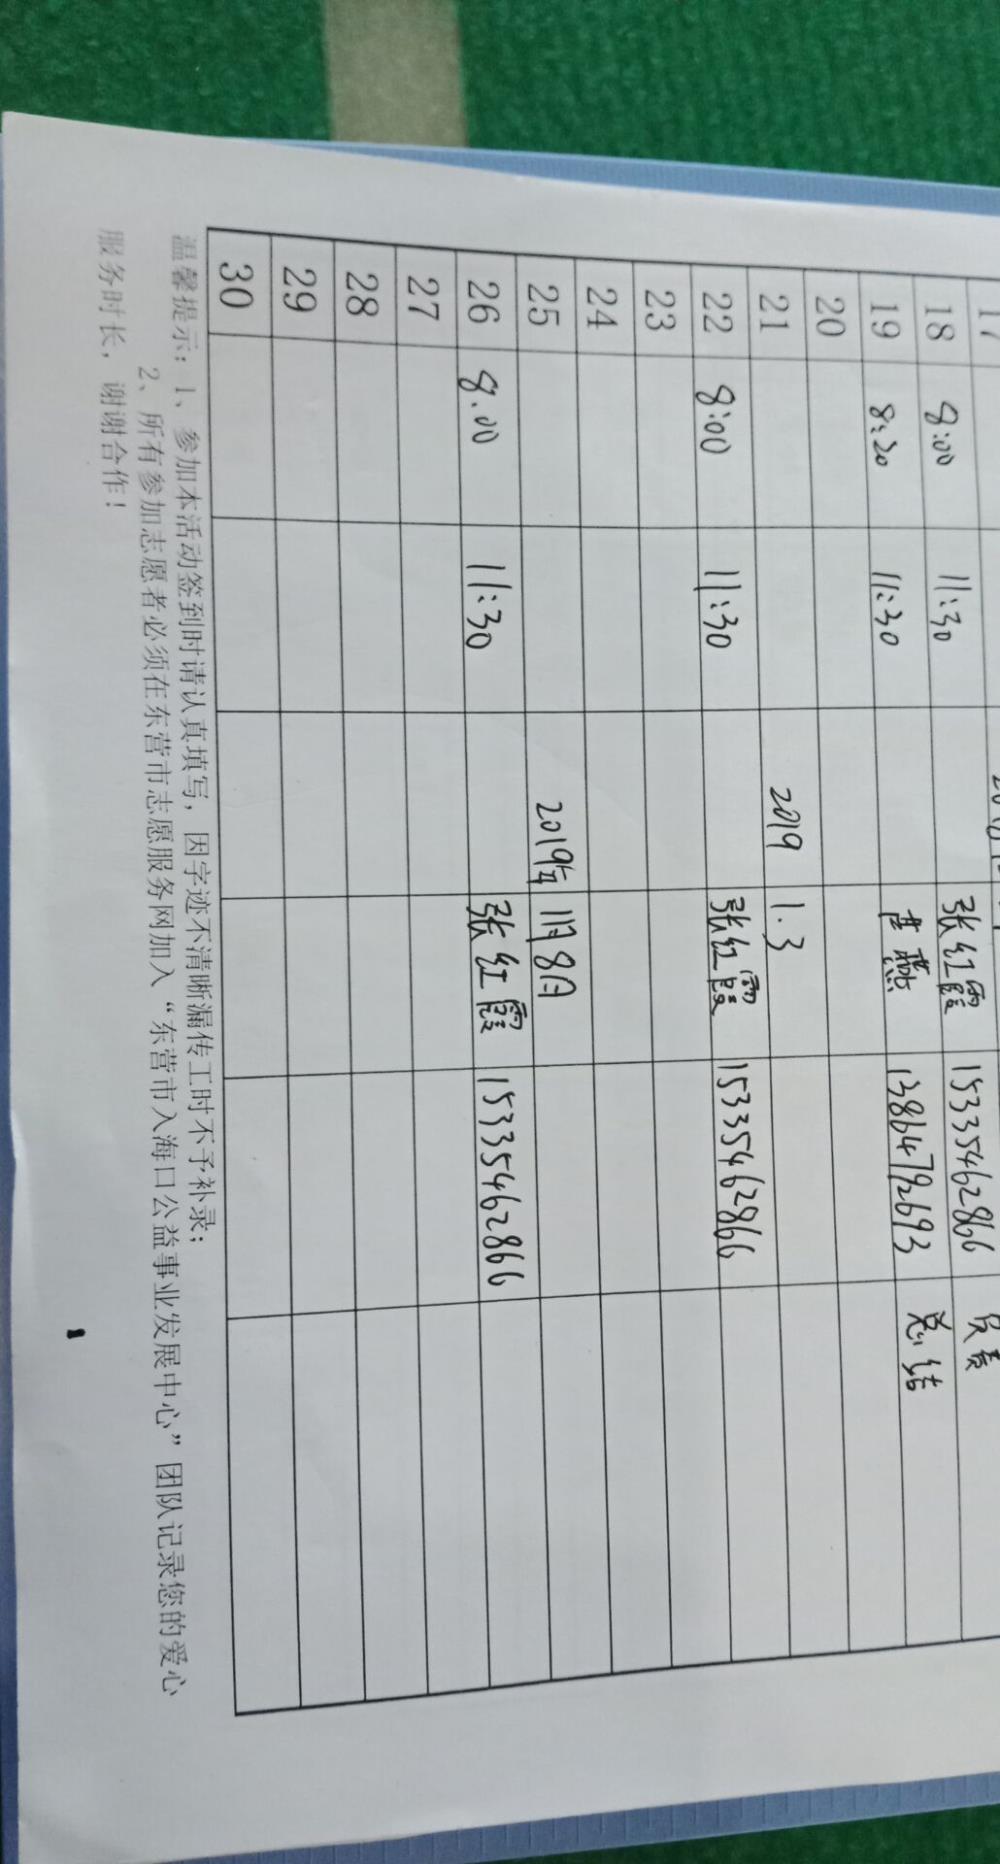 17
18 8:00 11:30 张红霞 15335462866 负责
19 8:20 11:30 燕 13864792693 总结
20
21 2019 1.3
22 8:00 11:30 张红霞 15335462866
23
24
25 2019年 1月8日
26 8.00 11:30 张红霞 15335462866
27
28
29
30
温馨提示：1、参加本活动签到时请认真填写，因字迹不清晰漏传工时不予补录；
2、所有参加志愿者必须在东营市志愿服务网加入“东营市入海口公益事业发展中心”团队记录您的爱心
服务时长，谢谢合作！